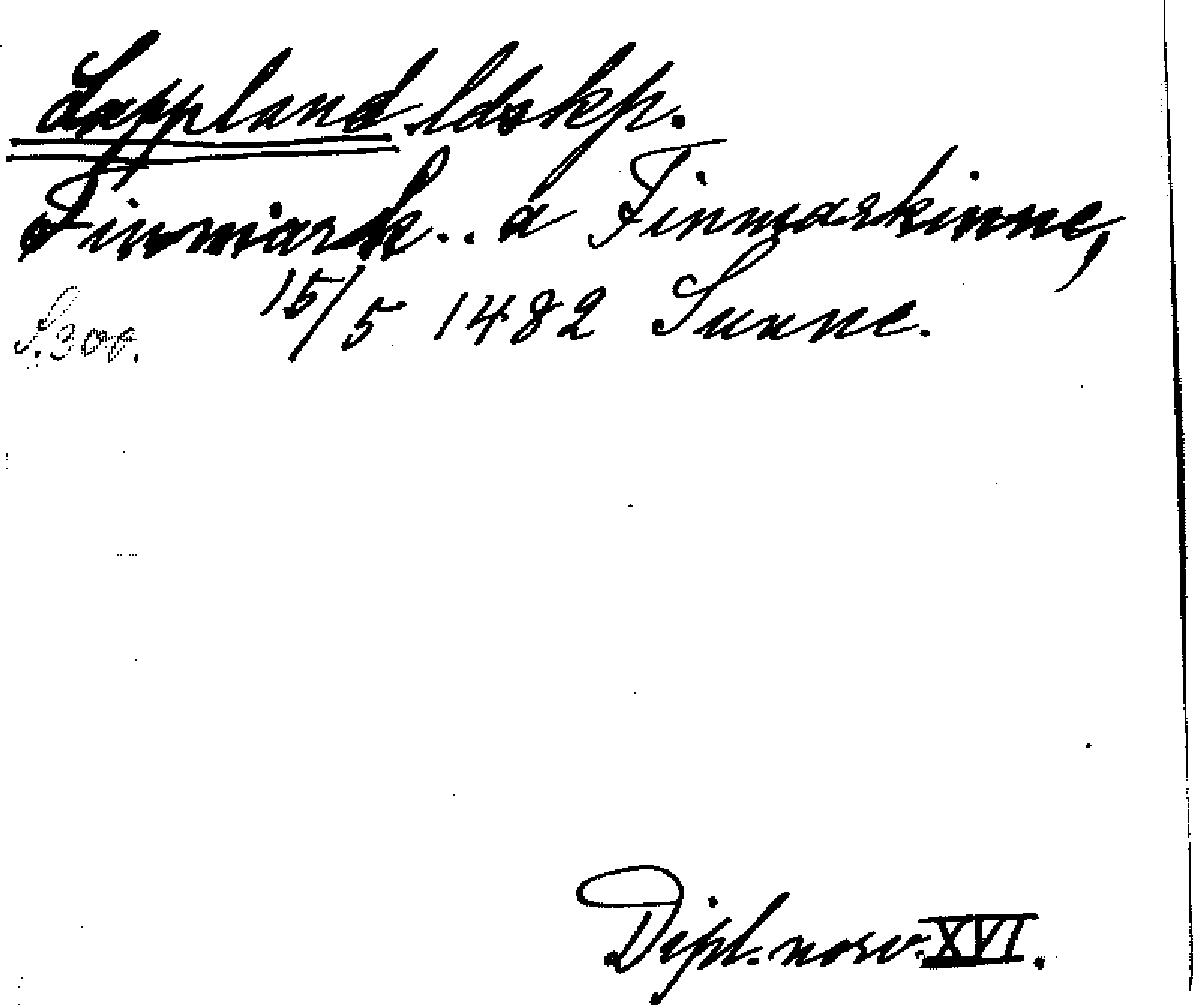 Lappland ldskp.
Finmark.. a Finmarkinne,
15/5 1482 Sunne.
S. 300.
Dipl. norv. XVI.